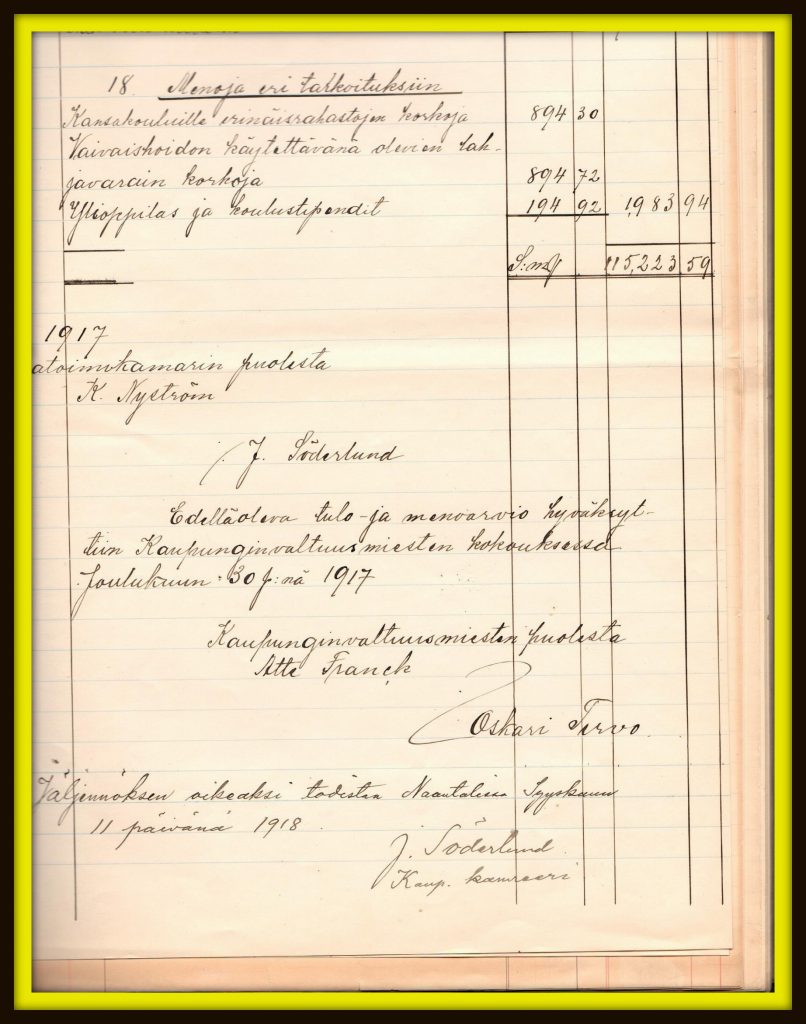 18. Menoja eri tarkoituksiin
Kansakouluille erinäisrahastojen korkoja 894 30
Vaivaishoidon käytettävänä olevien lah-
javarain korkoja 894 72
Ylioppilas ja koulustipendit 194 92 1,983 94
S:mf 115,223 59
1917
atoimikamarin puolesta
K. Nyström
J. Söderlund
Edelläoleva tulo- ja menoarvio hyväksyt-
tiin Kaupunginvaltuusmiesten kokouksessa
Joulukuun 30 p:nä 1917
Kaupunginvaltuusmiesten puolesta
Atte Franck
Oskari Tervo
Jäljennöksen oikeaksi todistaa Naantalissa Syyskuun
11 päivänä 1918
J. Söderlund
Kaup. kamreeri